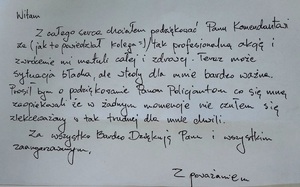 Witam
Z całego serca chciałem podziękować Panu Komendantowi
za (jak to powiedział kolega) tak profesjonalną akcję i
zwrócenie mi matuli całej i zdrowej. Teraz może
sytuacja błacha, ale wtedy dla mnie bardzo ważna.
Prosił bym o podziękowanie Panom Policjantom co się mną
zaopiekowali że w żadnym momencie nie czułem się
zlekceważony w tak trudnej dla mnie chwili.
Za wszystko Bardzo Dziękuję Panu i wszystkim
zaangażowanym.
Z poważaniem